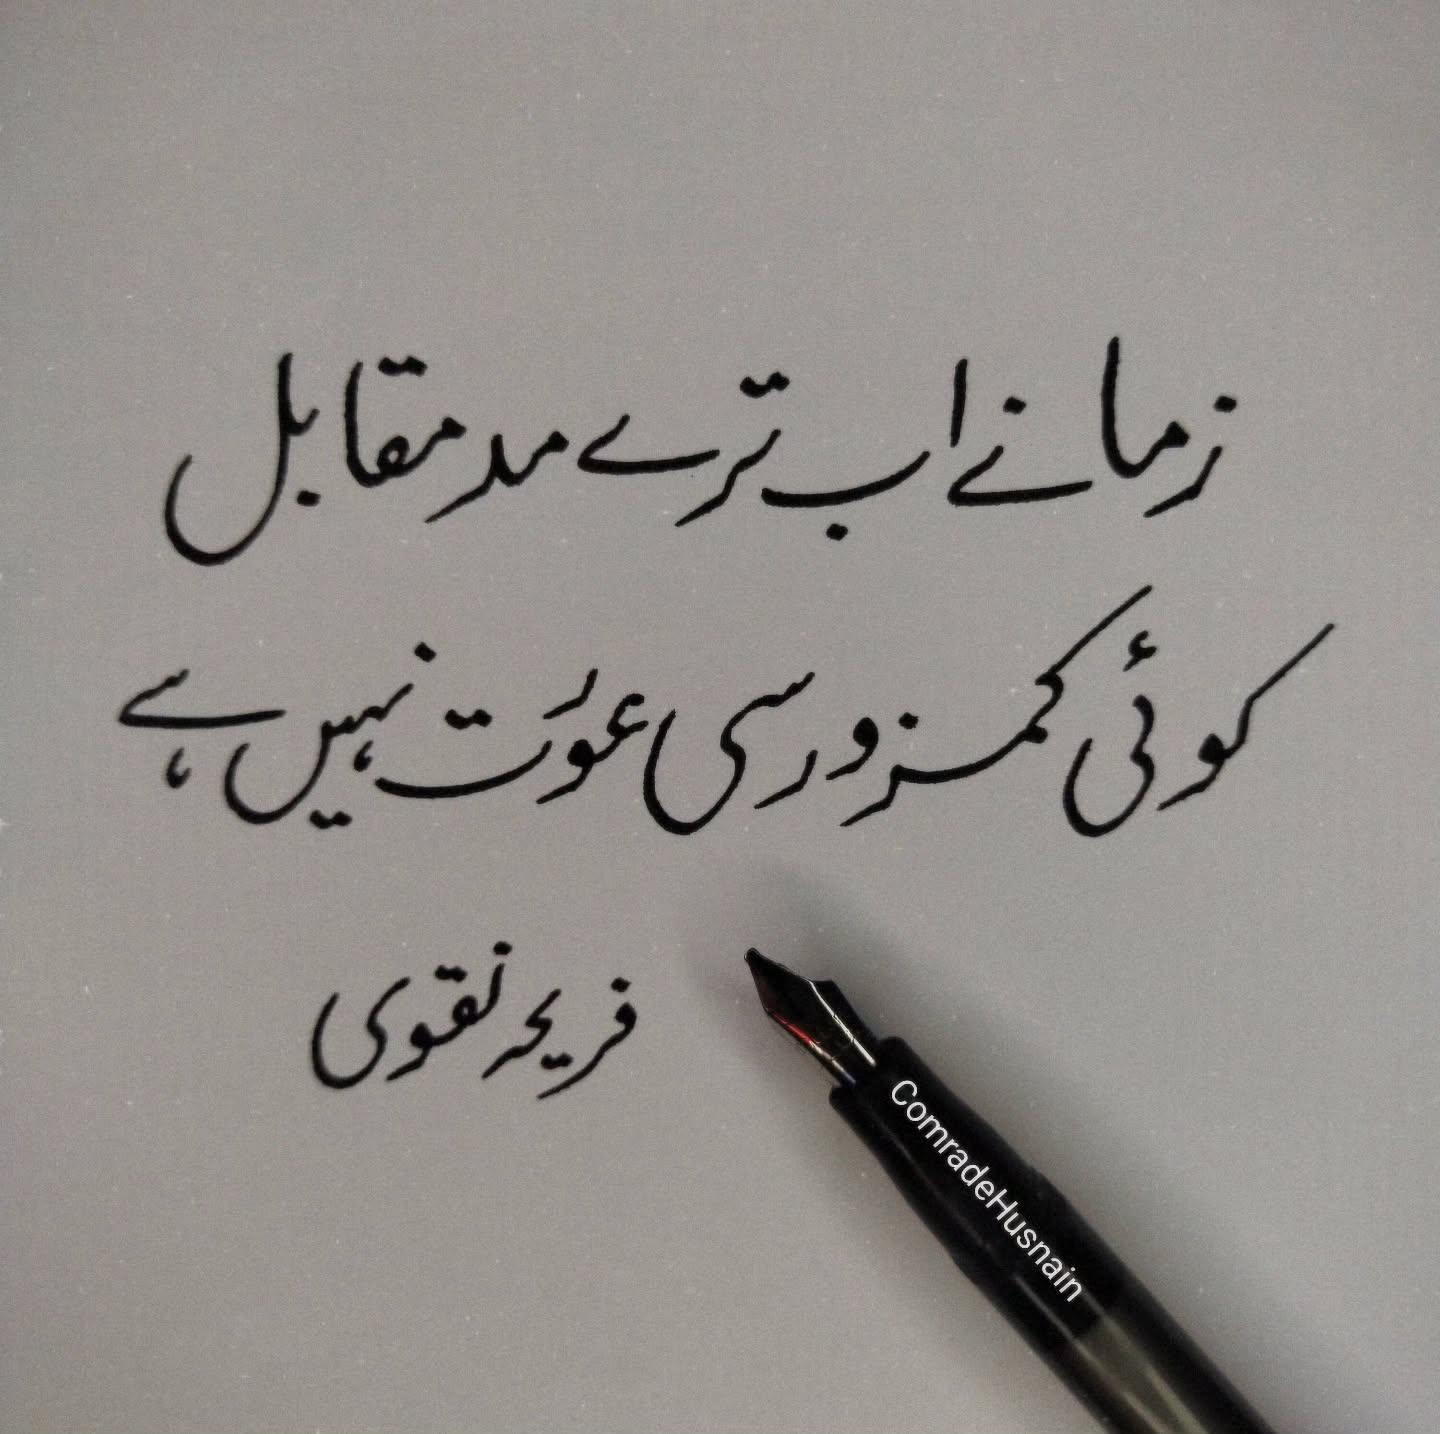 زمانے اب ترے مد مقابل
کوئی کمزور سی عورت نہیں ہے
فریحہ نقوی
ComradeHusnain